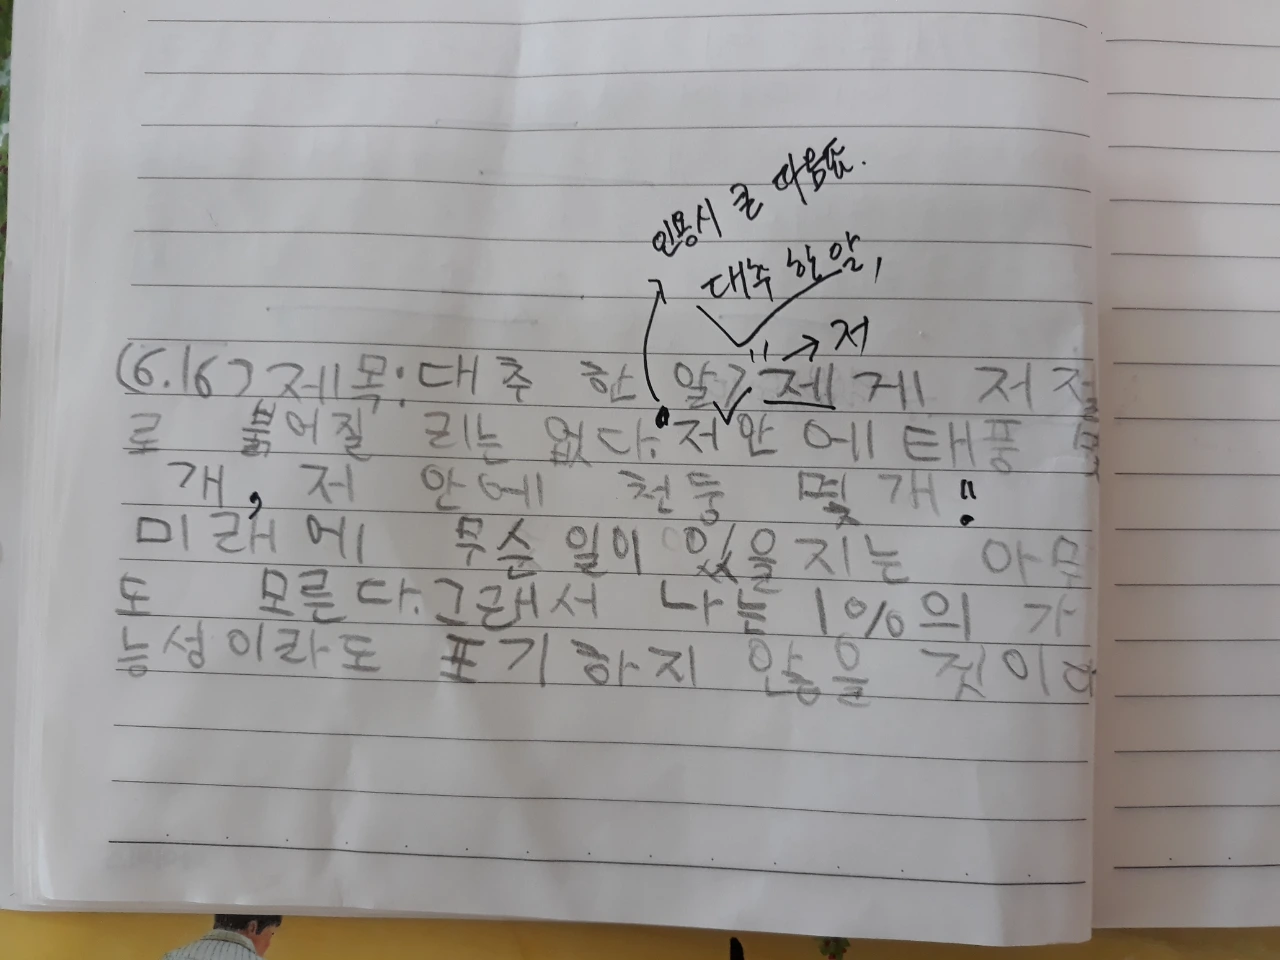 인용시 큰 따옴표.
대주 한 알,
" → 저
(6.16) 제목:대추 한 알? 제게 저절
로 붉어질 리는 없다. 저 안에 태풍 몇
개, 저 안에 천둥 몇 개"
미래에 무슨 일이 있을지는 아무
도 모른다. 그래서 나는 1%의 가
능성이라도 포기하지 않을 것이다